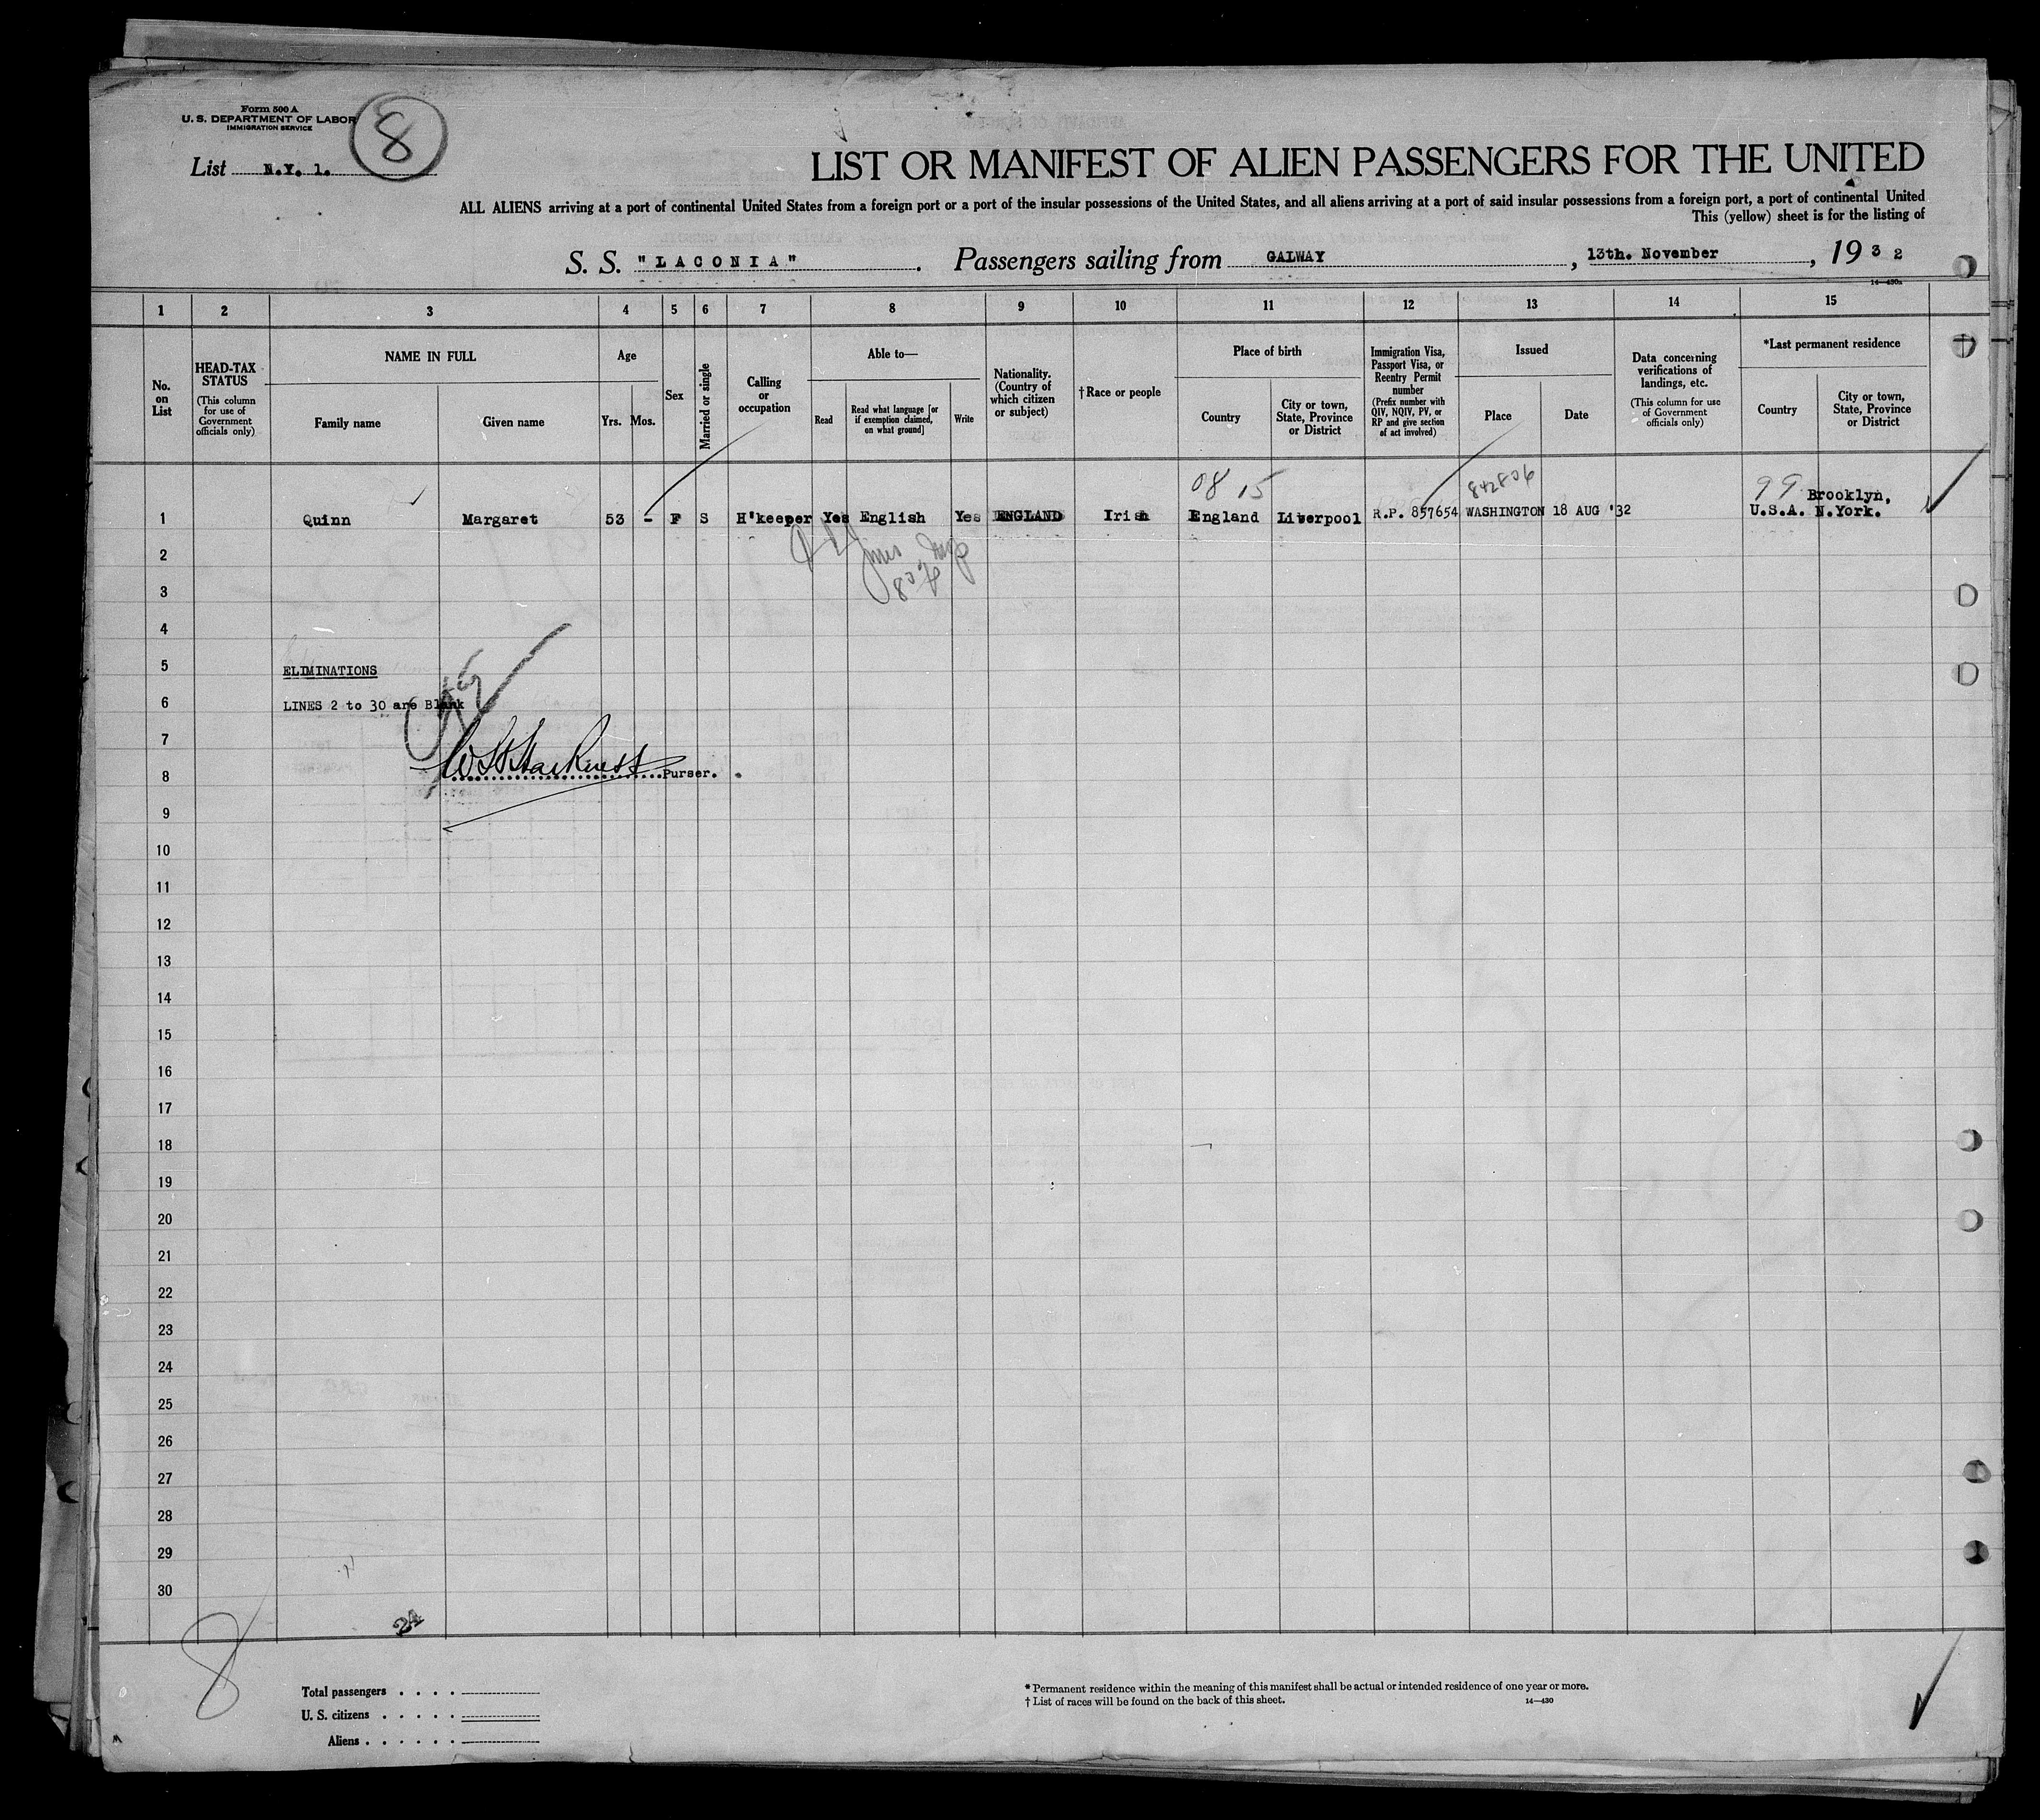 Form 500 A
U. S. DEPARTMENT OF LABOR
IMMIGRATION SERVICE
8
List N.Y. 1.
LIST OR MANIFEST OF ALIEN PASSENGERS FOR THE UNITED
ALL ALIENS arriving at a port of continental United States from a foreign port or a port of the insular possessions of the United States, and all aliens arriving at a port of said insular possessions from a foreign port, a port of continental United
This (yellow) sheet is for the listing of
S. S. "LACONIA". Passengers sailing from GALWAY, 13th. November, 1932
14—430a
1 2 3 4 5 6 7 8 9 10 11 12 13 14 15
No. on List
HEAD-TAX STATUS
(This column for use of Government officials only)
NAME IN FULL
Family name
Given name
Age
Yrs. Mos.
Sex
Married or single
Calling or occupation
Able to—
Read
Read what language [or if exemption claimed, on what ground]
Write
Nationality. (Country of which citizen or subject)
†Race or people
Place of birth
Country
City or town, State, Province or District
Immigration Visa, Passport Visa, or Reentry Permit number
(Prefix number with QIV, NQIV, PV, or RP and give section of act involved)
Issued
Place
Date
Data concerning verifications of landings, etc.
(This column for use of Government officials only)
*Last permanent residence
Country
City or town, State, Province or District
08 15
842806
99 Brooklyn,
1 Quinn Margaret 53 - F S H'keeper Yes English Yes ENGLAND Irish England Liverpool R.P. 857654 WASHINGTON 18 AUG '32 U.S.A. N.York.
2
3
4
5
ELIMINATIONS
6
LINES 2 to 30 are Blank
7
8
Purser.
9
10
11
12
13
14
15
16
17
18
19
20
21
22
23
24
25
26
27
28
29
30
8
Total passengers . . . .
U. S. citizens . . . . .
Aliens . . . . . .
* Permanent residence within the meaning of this manifest shall be actual or intended residence of one year or more.
† List of races will be found on the back of this sheet.
14—430